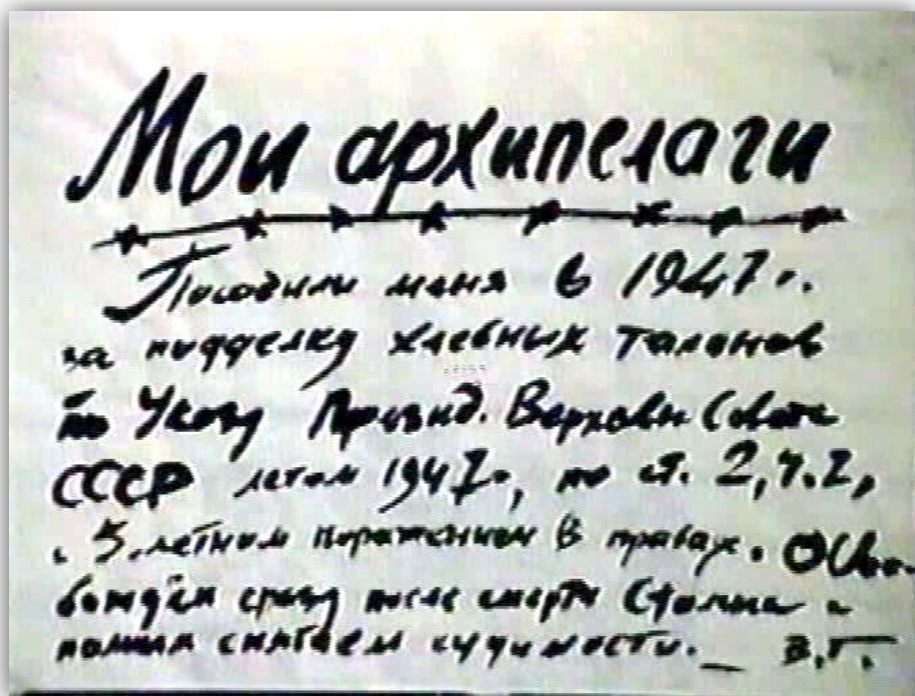 Мои архипелаги
Посадили меня в 1947 г.
за подделку хлебных талонов
по Указу Презид. Верховн Совета
СССР летом 1947г., по ст. 2, ч. 2,
с 5 летним поражением в правах. Осво-
бождён сразу после смерти Сталина с
полным снятием судимости. _ В.Г.